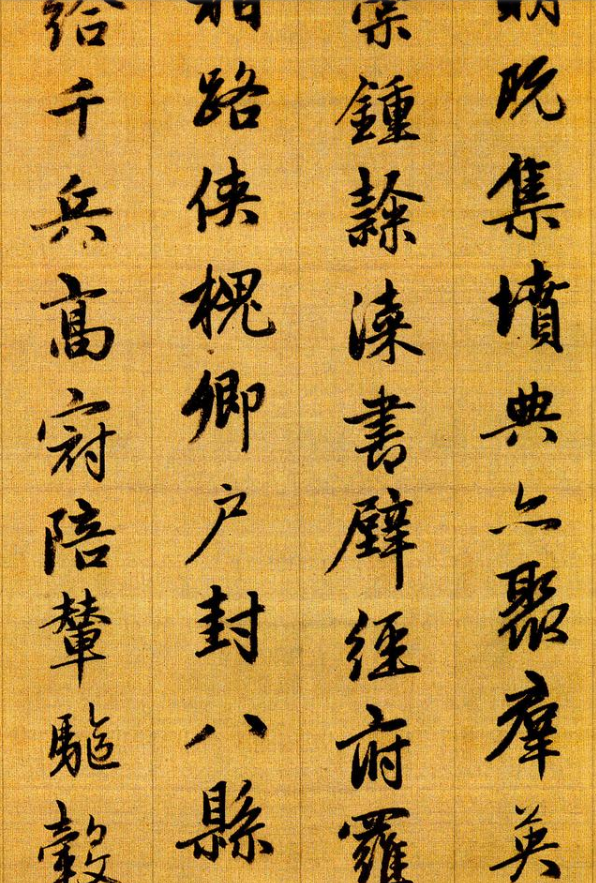 明既集墳典亦聚羣英
稾鍾隸漆書壁經府羅
相路俠槐卿户封八縣
給千兵高冠陪輦驅轂